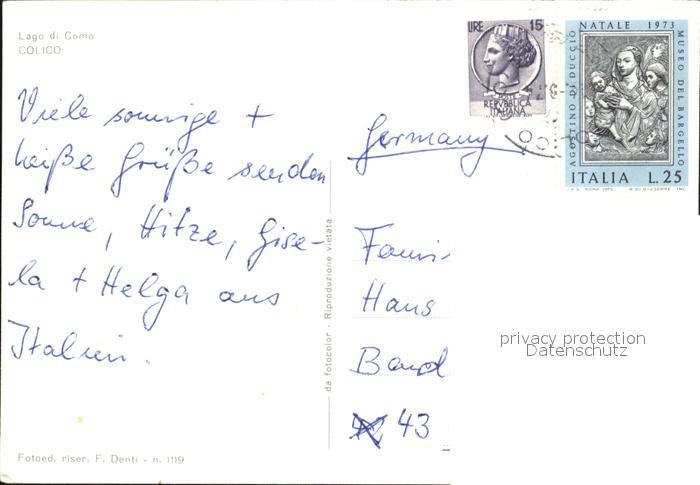 Lago di Como
COLICO
Viele sonnige +
heiße Grüße senden
Sonne, Hitze, Gise-
la + Helga aus
Italien.
Fotoed. riser. F. Denti - n. 1119
da fotocolor - Riproduzione vietata
LIRE 15
POSTE
REPVBBLICA
ITALIANA
NATALE 1973
AGOSTINO DI DUCCIO
MUSEO DEL BARGELLO
ITALIA L.25
Germany
Hans
43
privacy protection
Datenschutz